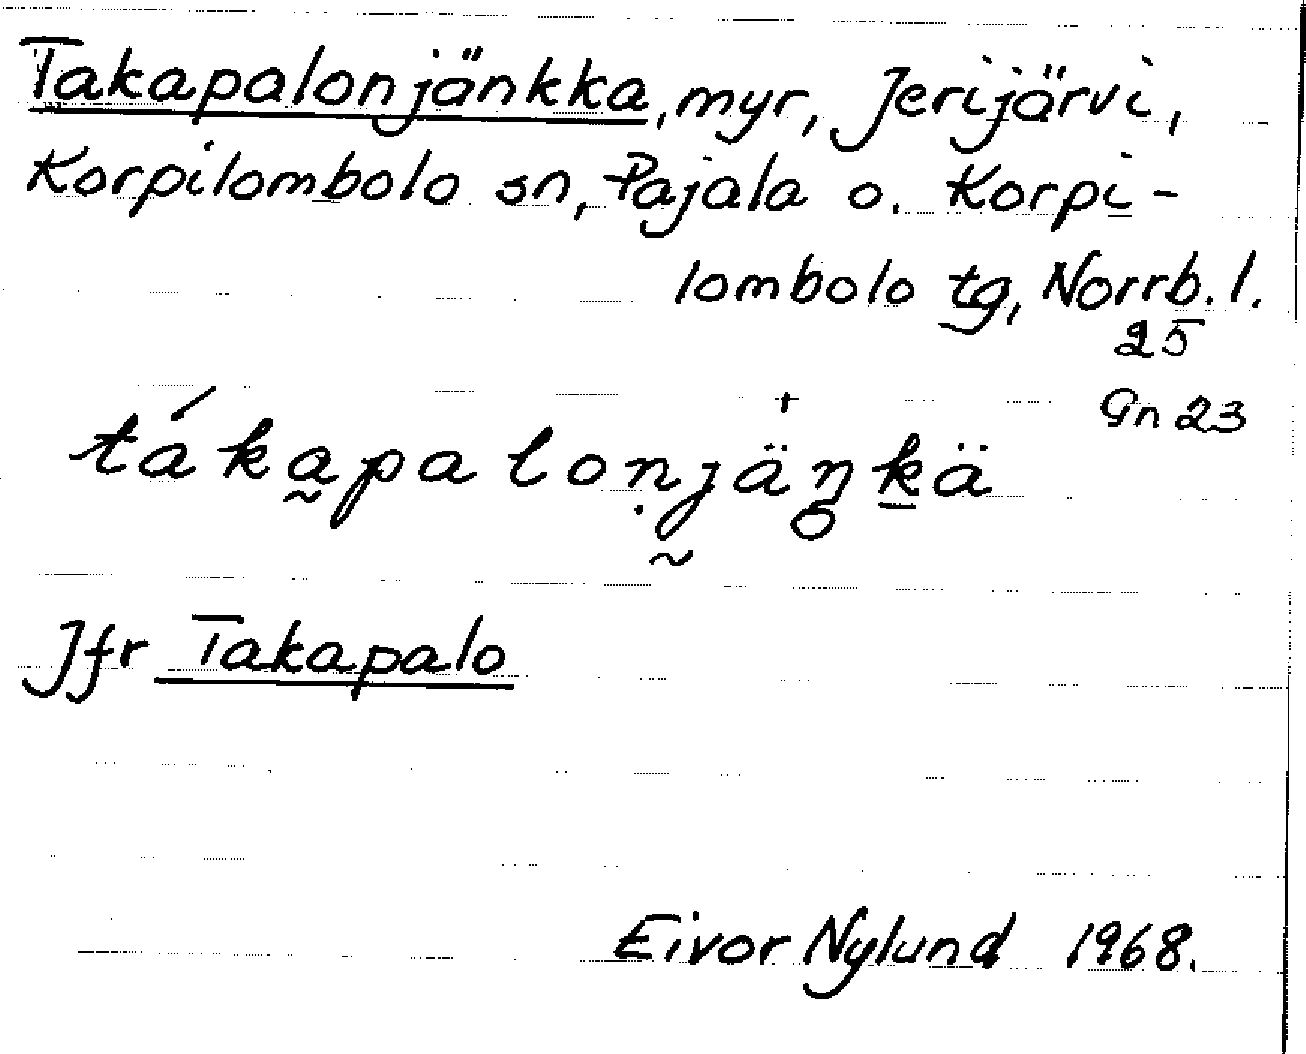 Takapalonjänkka, myr, Jerijärvi,
Korpilombolo sn, Pajala o. Korpi-
lombolo tg, Norrb. l.
25
Gn 23
táka̰paloṇj̰ä̟ŋ̥k̠ä
Jfr Takapalo
Eivor Nylund 1968.